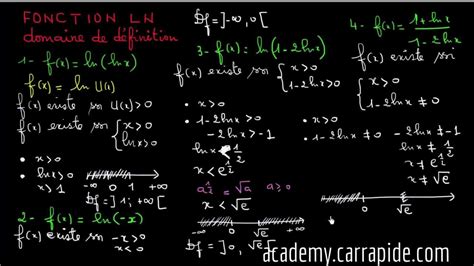 FONCTION LN
domaine de définition
1- f(x) = ln(lnx)
f(x) = ln U(x)
f(x) existe ssi U(x)>0
f(x) existe ssi { x>0
lnx>0
• x>0
• lnx>0
x>1
-∞ 0 1 +∞
Df = ]1; +∞[
2- f(x) = ln(-x)
f(x) existe ssi -x>0
x<0
Df = ]-∞, 0[
3- f(x) = ln(1-2lnx)
f(x) existe ssi { x>0
1-2lnx>0
• x>0
• 1-2lnx>0
-2lnx>-1
lnx < 1/2
x < e^1/2
a^1/2 = √a a≥0
x < √e
-∞ 0 √e +∞
Df = ]0, √e[
4- f(x) = 1+lnx / 1-2lnx
f(x) existe ssi
{ x>0
1-2lnx ≠ 0
• x>0
• 1-2lnx ≠ 0 -2lnx ≠ -1
lnx ≠ 1/2
x ≠ e^1/2
x ≠ √e
0 √e
academy.carrapide.com